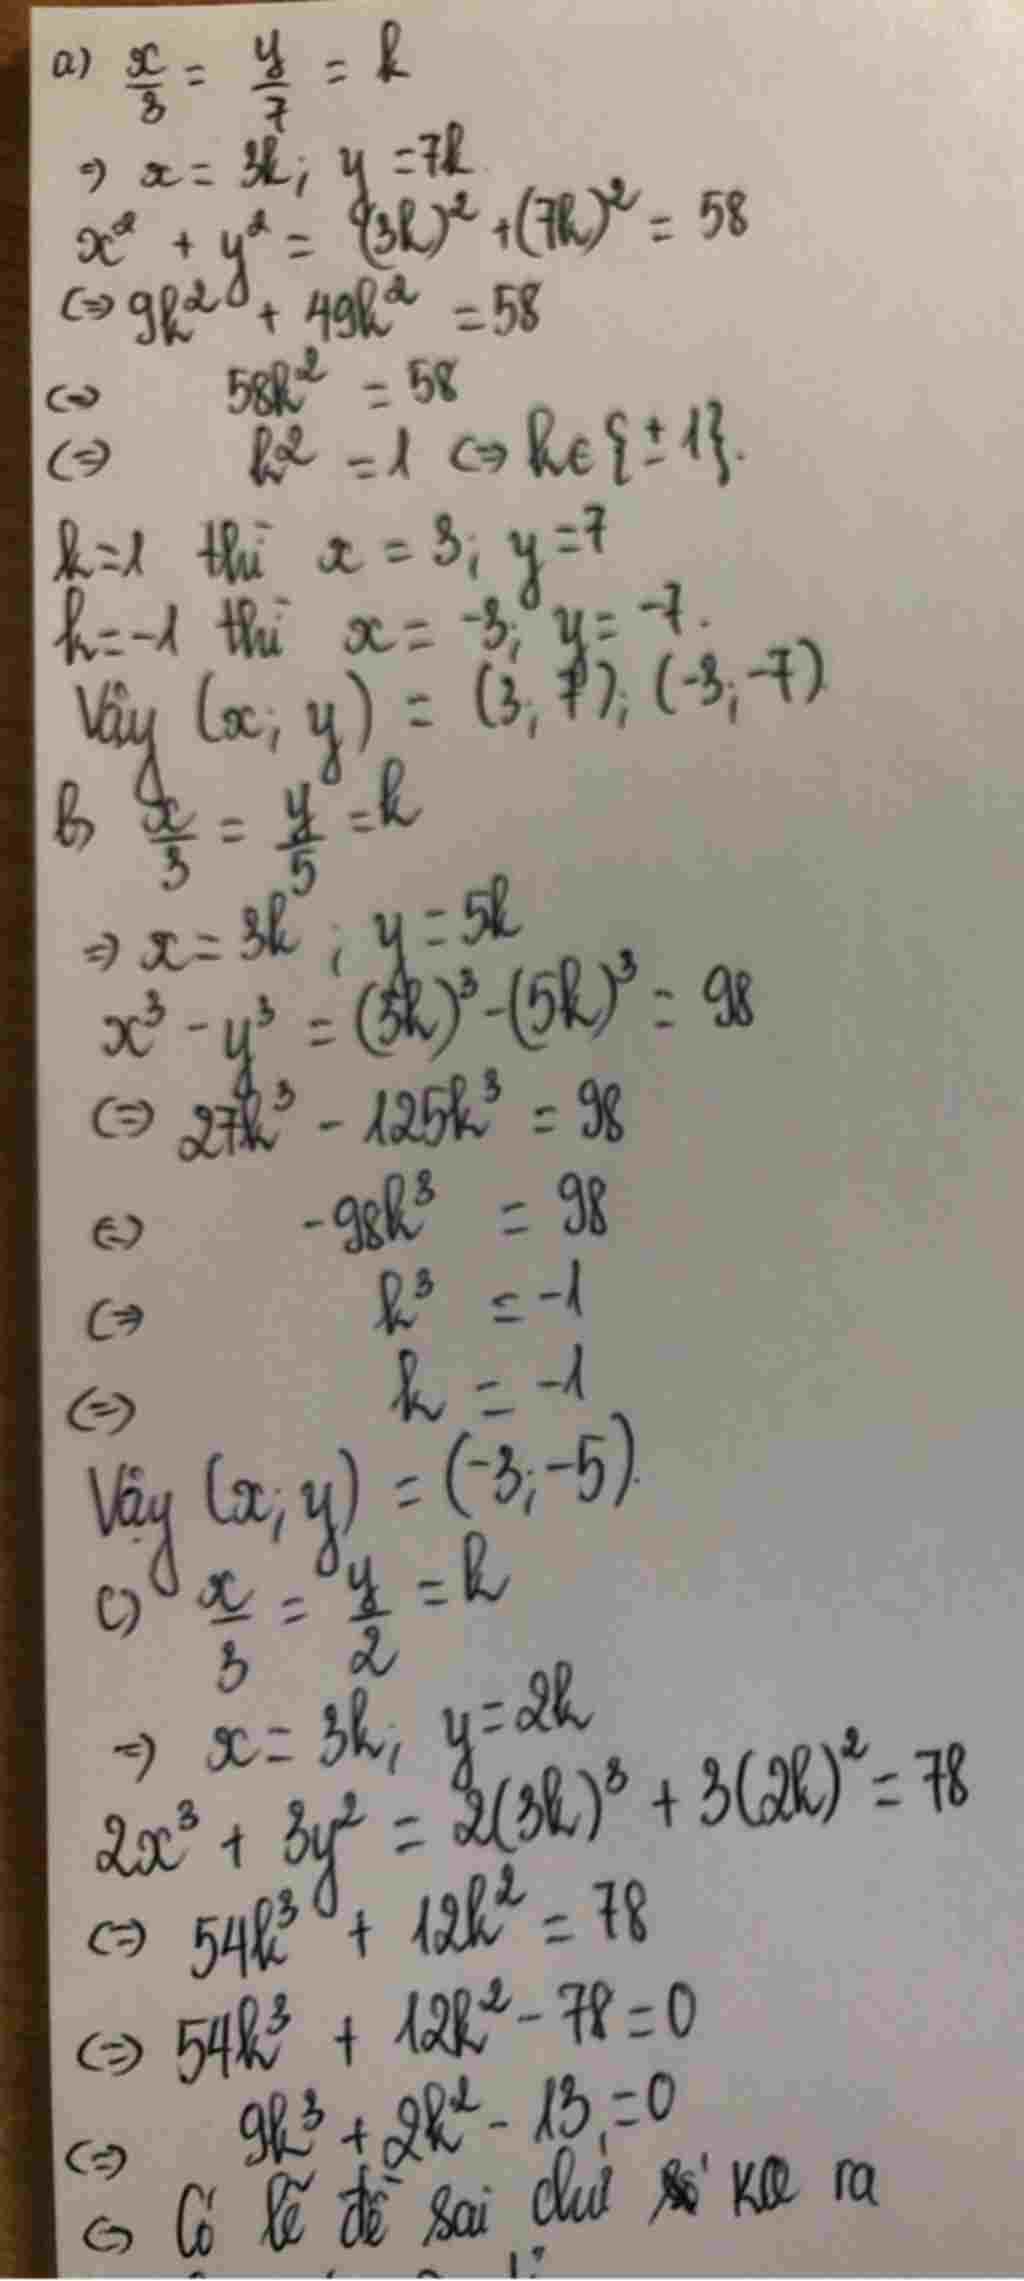 a) x/3 = y/7 = k
=> x = 3k; y = 7k
x² + y² = (3k)² + (7k)² = 58
<=> 9k² + 49k² = 58
<=> 58k² = 58
<=> k² = 1 <=> k ∈ {± 1}.
k=1 thì x = 3; y = 7
k=-1 thì x = -3; y = -7.
Vậy (x; y) = (3; 7); (-3; -7)
b) x/3 = y/5 = k
=> x = 3k; y = 5k
x³ - y³ = (3k)³ - (5k)³ = 98
<=> 27k³ - 125k³ = 98
<=> -98k³ = 98
<=> k³ = -1
<=> k = -1
Vậy (x; y) = (-3; -5).
c) x/3 = y/2 = k
=> x = 3k; y = 2k
2x³ + 3y² = 2(3k)³ + 3(2k)² = 78
<=> 54k³ + 12k² = 78
<=> 54k³ + 12k² - 78 = 0
<=> 9k³ + 2k² - 13 = 0
<=> Có lẽ đề sai chứ số ra